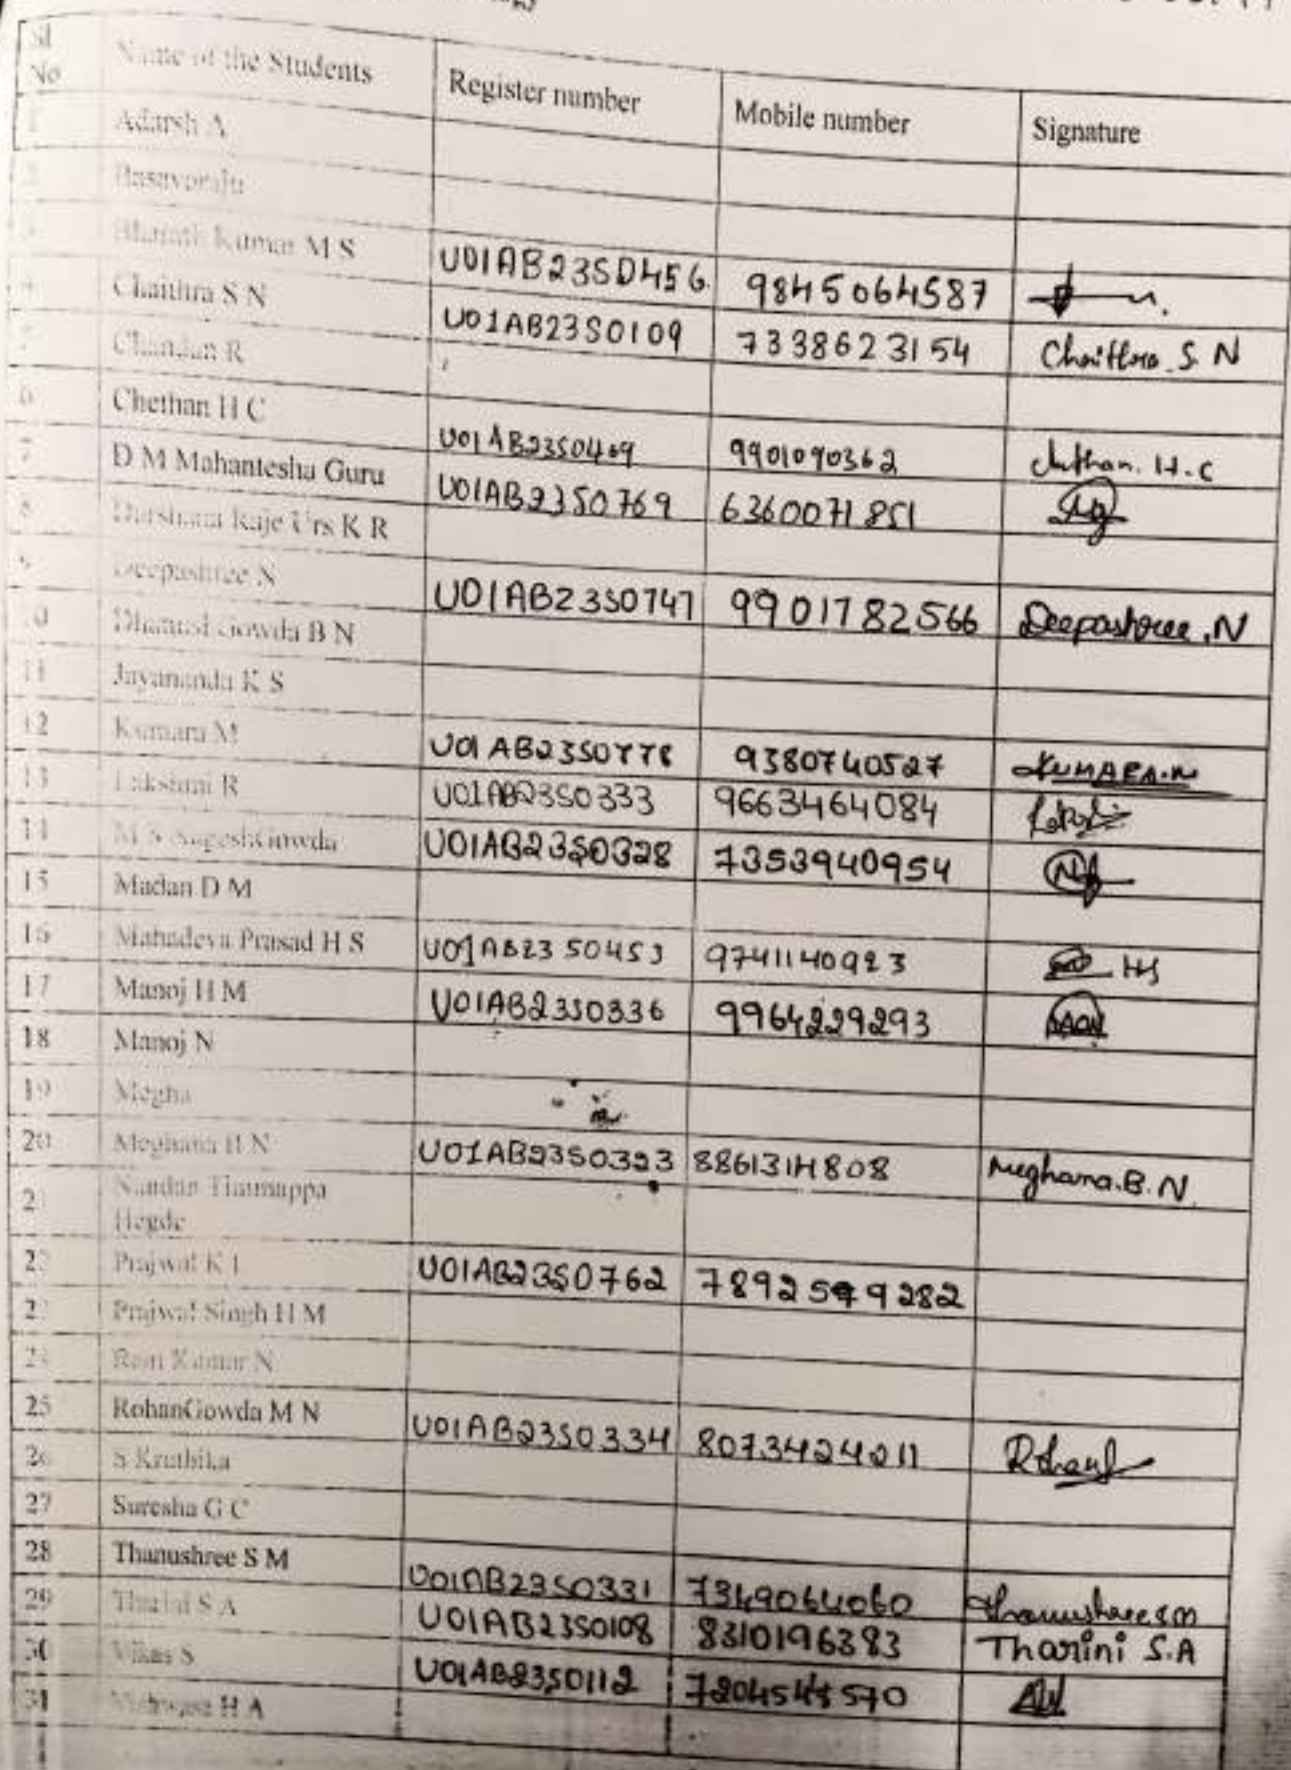 Sl No Name of the Students Register number Mobile number Signature
1 Adarsh A
2 Basavaraju
3 Bharath Kumar M S U01AB23S0456 9845064587
4 Chaithra S N U01AB23S0109 7338623154 Chaithra S. N
5 Chandan R
6 Chethan H C U01AB23S0409 9901090362 Chethan. H.C
7 D M Mahantesha Guru U01AB23S0769 6360071851
8 Darshan Raje Urs K R
9 Deepashree N U01AB23S0747 9901782566 Deepashree.N
10 Dhanush Gowda B N
11 Jayananda K S
12 Kumara M U01AB23S0778 9380740527 KUMARA.M
13 Lakshmi R U01AB23S0333 9663464084
14 M S NageshGowda U01AB23S0328 7353940954
15 Madan D M
16 Mahadeva Prasad H S U01AB23S0453 9741140923 HS
17 Manoj H M U01AB23S0336 9964229293
18 Manoj N
19 Megha
20 Meghana B N U01AB23S0323 8861314808 Meghana.B.N
21 Nandan Timmappa
Hegde
22 Prajwal K I U01AB23S0762 7892599282
23 Prajwal Singh H M
24 Ram Kumar N
25 RohanGowda M N U01AB23S0334 8073424211
26 S Kruthika
27 Suresha G C
28 Thanushree S M U01AB23S0331 7349064060 Thanushree S M
29 Tharini S A U01AB23S0108 8310196383 Tharini S.A
30 Vikas S U01AB23S0112
31 H A